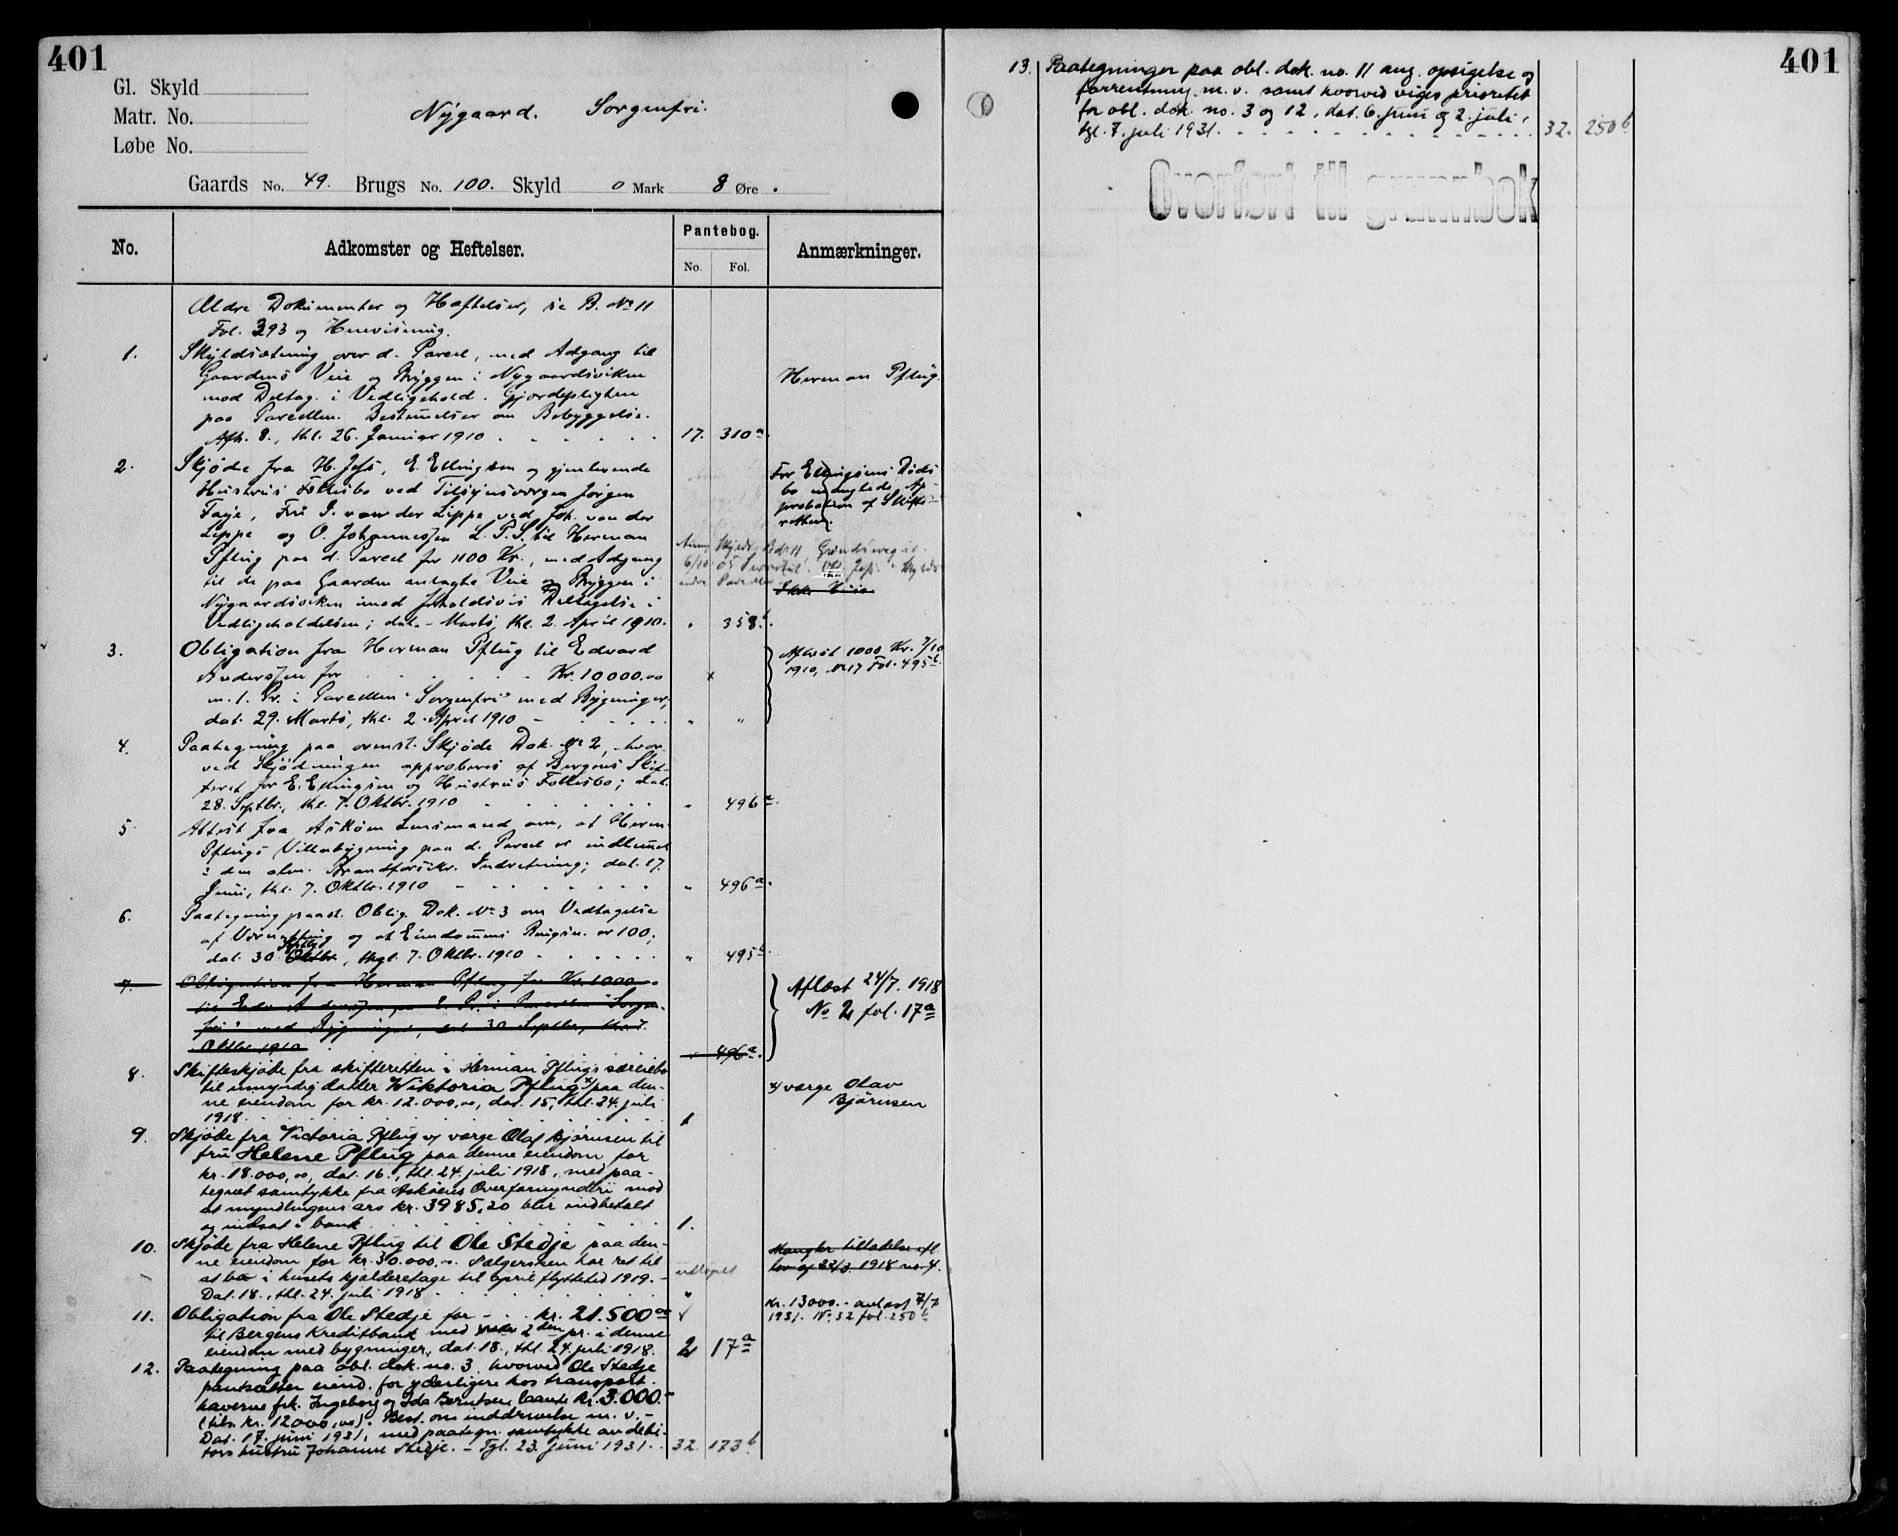 401
Gl. Skyld
Matr. No.
Løbe No.
Nygaard. Sorgenfri.
Gaards No. 49. Brugs No. 100. Skyld 0 Mark 8 Øre.
No.
Adkomster og Heftelser.
Pantebog.
No. Fol.
Anmærkninger.
Ældre Dokumenter og Hæftelser, se B. No 11
Fol. 393 og Henvisning.
1. Skyldsætning over d. Parcel, med Adgang til
Gaardens Veie og Bryggen i Nygaardsviken
mod Deltag. i Vedligehold. Gjerdepligten
paa Parcellen. Bestemelser om Bebyggelse.
Afh. 8., thl. 26. Januar 1910 17. 310a.
Herman Pflug.
2. Skjøde fra H. Jess, E. Ellingsen og gjenlevende
Hustrus Fællesbo ved Tilsynsværgen Jørgen
Faye, Fru I. van der Lippe ved Joh. van der
Lippe og O. Johannessen L. P. S. til Herman
Pflug paa d. Parcel for 1100 Kr., med Adgang
til de paa Gaarden anlagte Veie og Bryggen i
Nygaardsviken imod forholdsvis Deltagelse i
Vedligeholdelsen; dat. - Marts, thl. 2. April 1910. " 358b.
For Ellingsens Døds
bo manglede Ap-
probation af Skifte-
retten.
3. Obligation fra Herman Pflug til Edvard
Anderssen for Kr. 10000.00
m. 1. Pr. i Parcellen "Sorgenfri" med Bygninger,
dat. 29. Marts, thl. 2. April 1910 " "
Aflæst 1000 Kr. 7/10
1910, No 17 Fol. 495b.
4. Paategning paa ovenst. Skjøde Dok. No 2, hvor-
ved Skjødningen approberes af Bergens Skif-
teret for E. Ellingsen og Hustrus Fællesbo; dat.
28. Septbr., thl. 7. Oktbr. 1910 " 496a.
5. Attest fra Askøen Lensmand om, at Herm.
Pflugs Villabygning paa d. Parcel er indlemmet
i den alm. Brandforsikr. Indretning; dat. 17.
Juni, thl. 7. Oktbr. 1910 " 496a.
6. Paategning paa st. Oblig. Dok. No 3 om Vedtagelse
af Værneting og at Eiendommens Brugsn. er 100;
dat. 30 Septbr., thgl. 7. Oktbr. 1910 " 495b.
7. Obligation fra Herman Pflug for Kr. 1000
til Edv. Anderssen, m. 2. Pr. i Parcellen "Sorgen-
fri" med Bygninger, dat. 30 Septbr., thl. 7.
Oktbr. 1910 " 496a.
Aflæst 24/7. 1918
No 2 fol. 17a
8. Skifteskjøte fra skifteretten i Herman Pflugs særeiebo
til umyndig datter Wiktoria Pflug x) paa den-
ne eiendom for kr. 12.000,00, dat. 15., thl. 24. juli
1918 1
x) værge Olav
Bjørnsen
9. Skjøte fra Victoria Pflug og værge Olaf Bjørnsen til
fru Helene Pflug paa denne eiendom for
kr. 18.000,00, dat. 16., thl. 24. juli 1918, med paa-
tegnet samtykke fra Askøens Overformynderi mod
at myndlingens arv kr. 3985,20 blir indbetalt
og indsat i bank 1.
10. Skjøte fra Helene Pflug til Ole Stedje paa den-
ne eiendom for kr. 30.000,00. Sælgersken har ret til
at bo i husets kjælderetage til april flyttetid 1919.-
Dat. 18., thl. 24. juli 1918 "
utløpet
Mangler tilladelse efl.
lov af 22/3. 1918 no 4.
11. Obligation fra Ole Stedje for kr. 21.500.00
til Bergens Kreditbank med 2den pr. i denne
eiendom med bygninger, dat. 18., thl. 24. juli 1918. 2 17a
kr. 13000.- avlæst 7/7
1931. No. 32 fol. 250b
12. Paategning paa obl. dok. no. 3 hvorved Ole Stedje
pantsætter eiend. for yderligere hos transport-
haverne frk. Ingeborg og Ida Berntsen laante kr. 3.000.-
(tils. kr. 12000,00). Best. om inddrivelse m. v.-
Dat. 17. juni 1931, med paategn. samtykke av debi-
tors hustru Johanne Stedje.- Tgl. 23. juni 1931. 32. 173b
401
13. Paategninger paa obl. dok. no. 11 ang. opsigelse og
forrentning m. v. samt hvorved viges prioritet
for obl. dok. no. 3 og 12, dat. 6. juni og 2. juli,
tgl. 7. juli 1931. 32. 250b
Overført til grunnbok